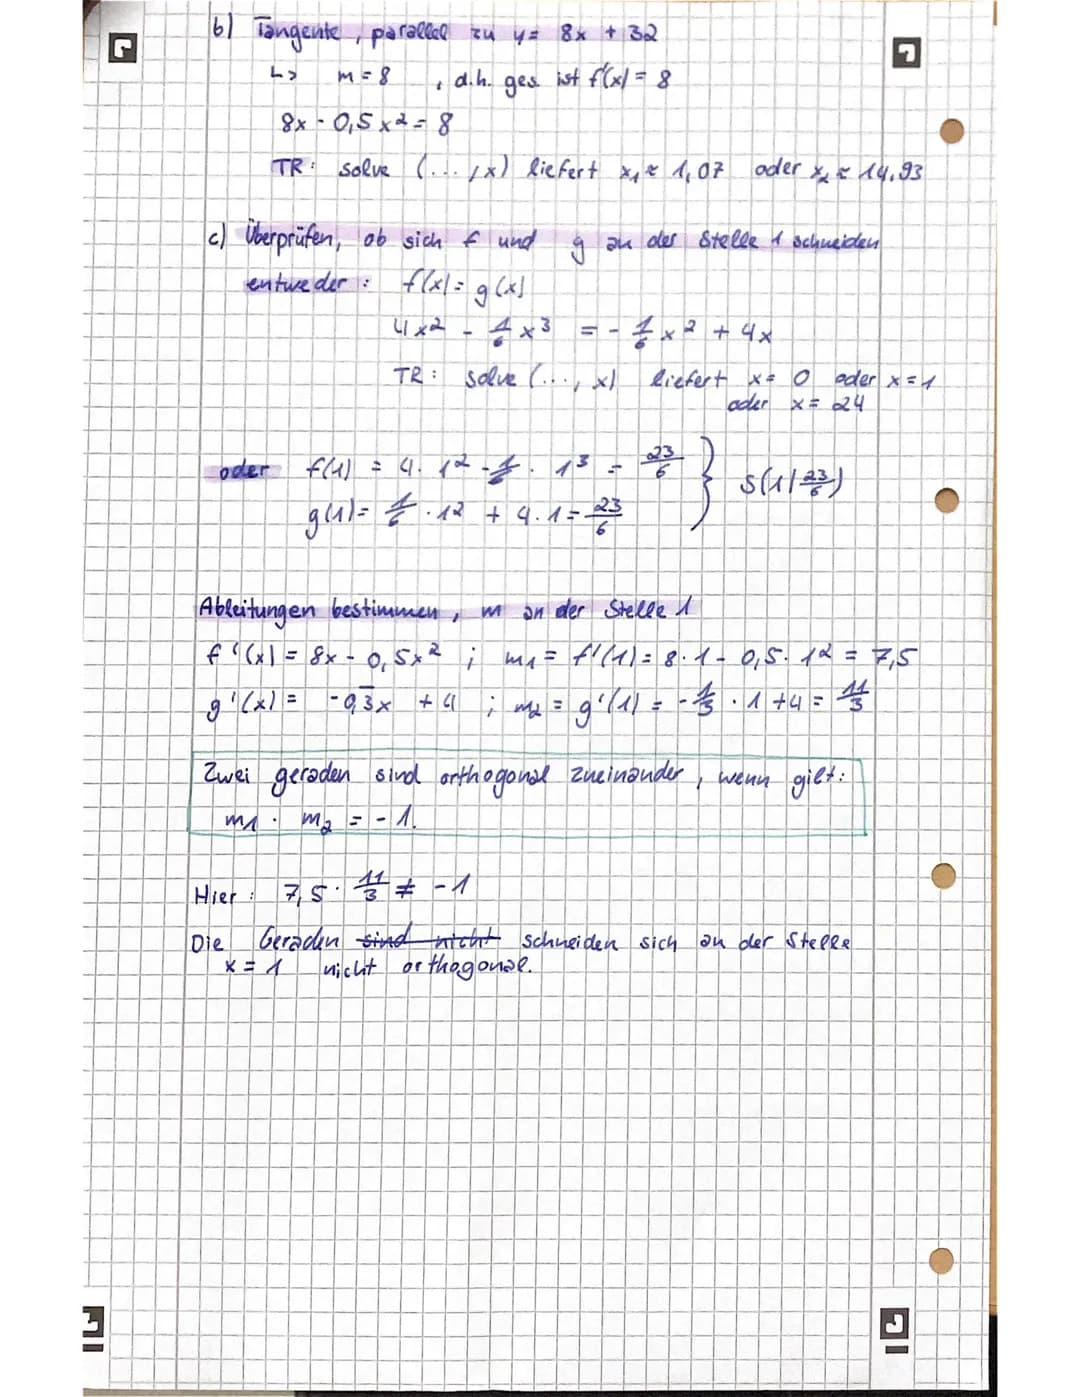 b) Tangente, parallel zu y = 8x + 32
↳ m = 8 , d.h. ges. ist f'(x) = 8
8x - 0,5x² = 8
TR: solve (..., x) liefert x₁ ≈ 1,07 oder x₂ ≈ 14,93
c) Überprüfen, ob sich f und g an der Stelle 1 schneiden
entweder: f(x) = g(x)
4x² - 1/6 x³ = - 1/6 x² + 4x
TR: solve (..., x) liefert x = 0 oder x = 1
oder x = 24
oder f(1) = 4 · 1² - 1/6 · 1³ = 23/6 } S(1|23/6)
g(1) = 1/6 · 1² + 4 · 1 = 23/6
Ableitungen bestimmen, m an der Stelle 1
f'(x) = 8x - 0,5x² ; m₁ = f'(1) = 8 · 1 - 0,5 · 1² = 7,5
g'(x) = -0,3̅x + 4 ; m₂ = g'(1) = - 1/3 · 1 + 4 = 11/3
Zwei geraden sind orthogonal zueinander, wenn gilt:
m₁ · m₂ = - 1.
Hier: 7,5 · 11/3 ≠ - 1
Die Geraden sind nicht schneiden sich an der Stelle
x = 1 nicht orthogonal.